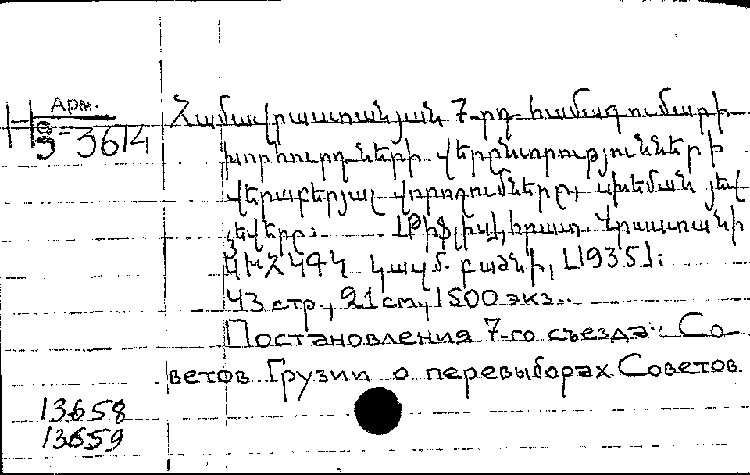 Арм.
5-3614
Համավրաստանյան 7-րդ համագումարի
խորհուրդների վերընտրությունների
վերաբերյալ վորոշումները, սխեման յեվ
[Թիֆլիս], հրատ. Վրաստանի
կազմ. բաժնի, [1935]։
43 стр., 21 см, 1500 экз..
Постановления 7-го съезда Со-
ветов Грузии о перевыборах Советов.
13658
13659